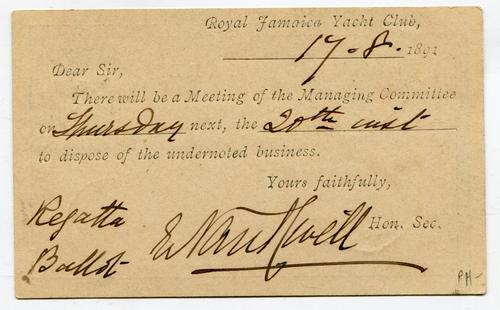 Royal Jamaica Yacht Club,
17-8. 1891
Dear Sir,
There will be a Meeting of the Managing Committee
on Thursday next, the 20th inst
to dispose of the undernoted business.
Yours faithfully,
Regatta
Hon. Sec.
Ballot
PH-